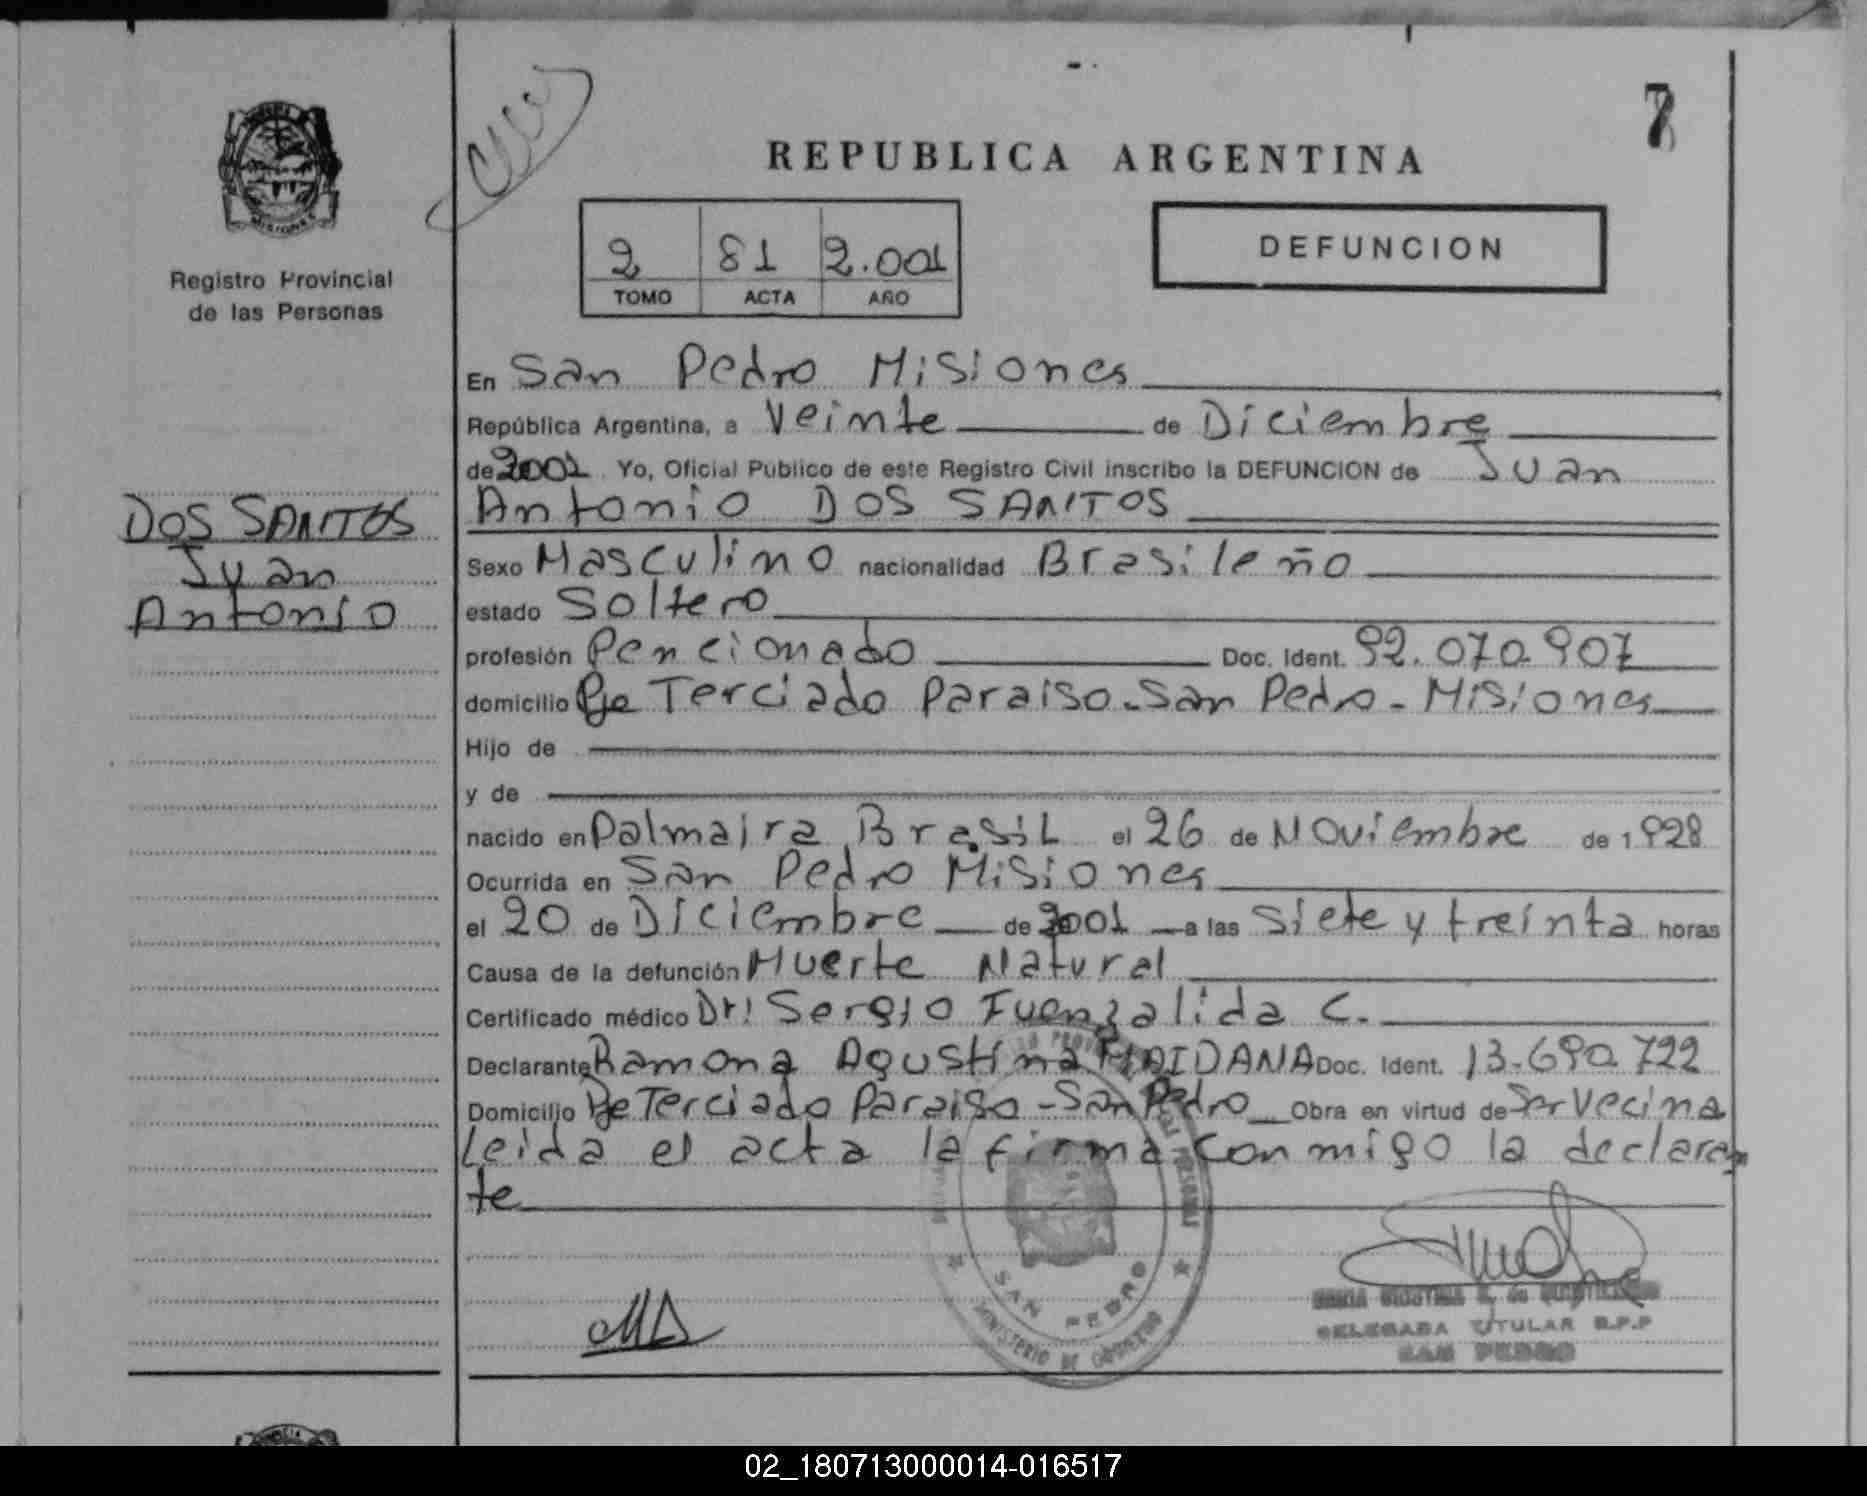 7
REPUBLICA ARGENTINA
MISIONES
Registro Provincial
de las Personas
2 81 2.001
TOMO ACTA AÑO
DEFUNCION
En San Pedro Misiones
República Argentina, a Veinte de Diciembre
de 2001 Yo, Oficial Público de este Registro Civil inscribo la DEFUNCION de Juan
Antonio DOS SANTOS
DOS SANTOS
Juan
Antonio
Sexo Masculino nacionalidad Brasileño
estado Soltero
profesión Pencionado Doc. Ident. 92.070.907
domicilio Pje Terciado Paraiso-San Pedro-Misiones
Hijo de
y de
nacido en Palmaira Brasil el 26 de Noviembre de 1928
Ocurrida en San Pedro Misiones
el 20 de Diciembre de 2001 a las Siete y treinta horas
Causa de la defunción Muerte Natural
Certificado médico Dr: Sergio Fuenzalida C.
Declarante Ramona Agustina MAIDANA Doc. Ident. 13.690.722
Domicilio Pje Terciado Paraiso-San Pedro Obra en virtud de Ser Vecina
Leida el acta la firma conmigo la declaran
te
SAN PEDRO
MINISTERIO DE GOBIERNO
DELEGADA TITULAR R.P.P
SAN PEDRO
02_180713000014-016517